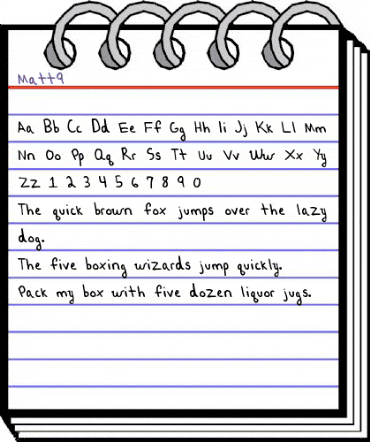 Matt9
Aa Bb Cc Dd Ee Ff Gg Hh Ii Jj Kk Ll Mm
Nn Oo Pp Qq Rr Ss Tt Uu Vv Ww Xx Yy
Zz 1 2 3 4 5 6 7 8 9 0
The quick brown fox jumps over the lazy
dog.
The five boxing wizards jump quickly.
Pack my box with five dozen liquor jugs.